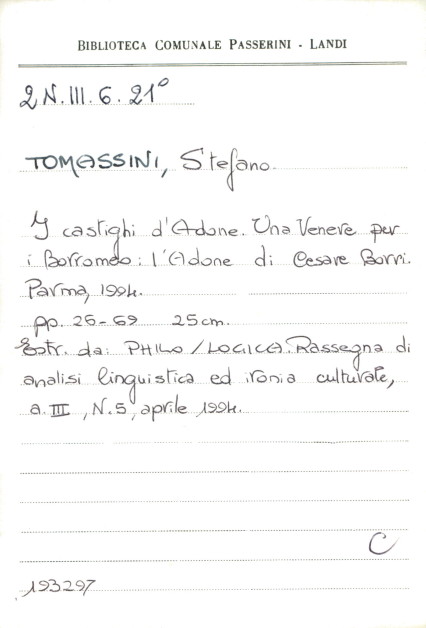 BIBLIOTECA COMUNALE PASSERINI - LANDI
2N.III.6.21°
TOMASSINI, Stefano.
I castighi d'Adone. Una Venere per
i Borromeo: l'Adone di Cesare Borri.
Parma, 1994.
pp. 26-69 25cm.
Estr. da: PHILO/LOGICA. Rassegna di
analisi linguistica ed ironia culturale,
a. III, N.5, aprile 1994.
C
193297